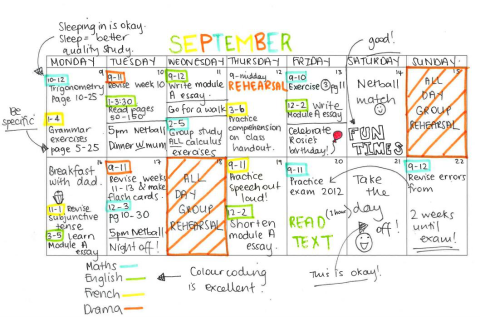 Sleeping in is okay.
Sleep = better
quality study.
SEPTEMBER
good!
MONDAY TUESDAY WEDNESDAY THURSDAY FRIDAY SATURDAY SUNDAY
Be
specific
9
10-12
Trigonometry
Page 10-25
1-4
Grammar
exercises
page 5-25
10
9-11
Revise week 10
1-3:30
Read pages
50-150
5pm Netball
Dinner w/mum
11
9-12
Write module
A essay.
Go for a walk
2-5
Group study
ALL calculus
exercises
12
9-midday
REHEARSAL
3-6
Practice
comprehension
on class
handout.
13
9-10
Exercise 3 pg 11
12-2 Write
Module A essay
Celebrate
Rosie's
birthday!
14
Netball
match
FUN
TIMES
15
ALL
DAY
GROUP
REHEARSAL
16
Breakfast
with dad.
11-1 Revise
Subjunctive
tense
3-5 learn
Module A
essay
17
9-11
Revise weeks
11-13 & make
flash cards.
12-3
pg 10-30
5pm Netball
Night off!
18
ALL
DAY
GROUP
REHEARSAL
19
9-11
Practice
Speech out
loud!
12-2
Shorten
module A
essay.
20
9-11
Practice
exam 2012
READ (1 hour)
TEXT
21
Take
the
day
off!
22
9-12
Revise errors
from
2 weeks
until
exam!
Maths
English
French
Drama
Colour coding
is excellent!
This is okay!